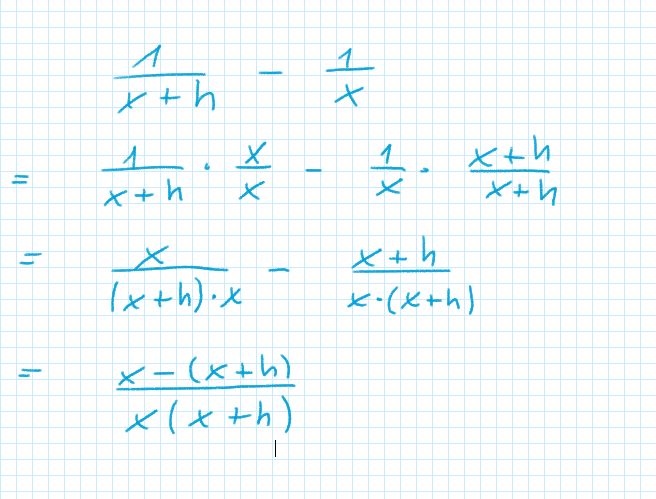 1/(x+h) - 1/x
= 1/(x+h) · x/x - 1/x · (x+h)/(x+h)
= x/((x+h)·x) - (x+h)/(x·(x+h))
= (x-(x+h))/(x(x+h))